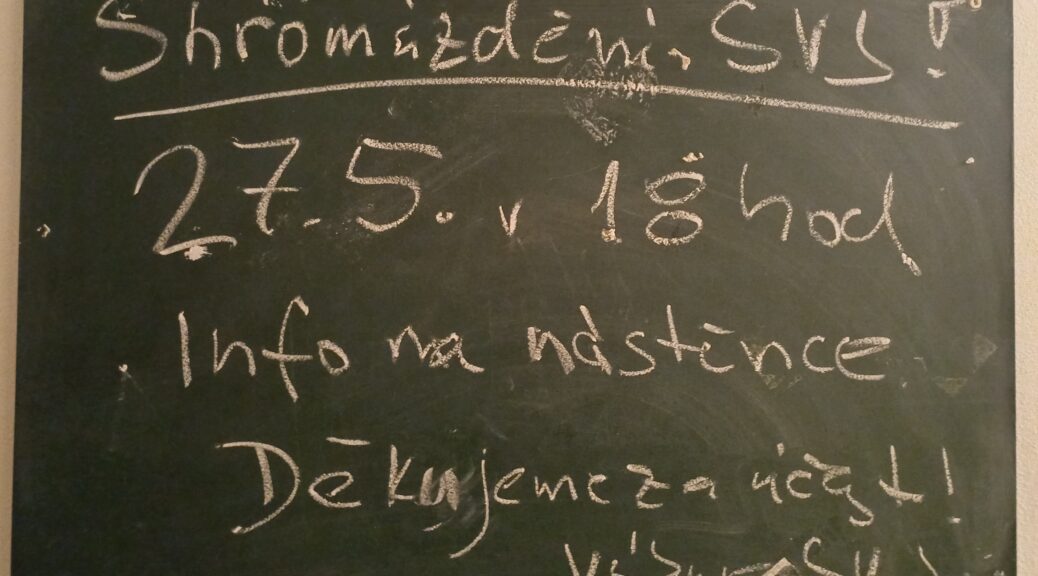 Shromáždění SVJ!
27.5. v 18 hod
Info na nástěnce
Děkujeme za účast!
Výbor SVJ